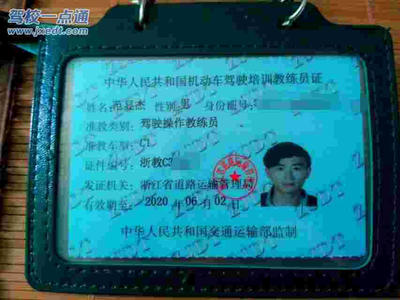 驾校一点通
www.jxedt.com
中华人民共和国机动车驾驶培训教练员证
姓名: 杰 性别: 男 身份证号:
准教类别: 驾驶操作教练员
准教车型: C1
证件编号: 浙教C3
发证机关: 浙江省道路运输管理局
有效期至: 2020 年 06 月 02 日
中华人民共和国交通运输部监制